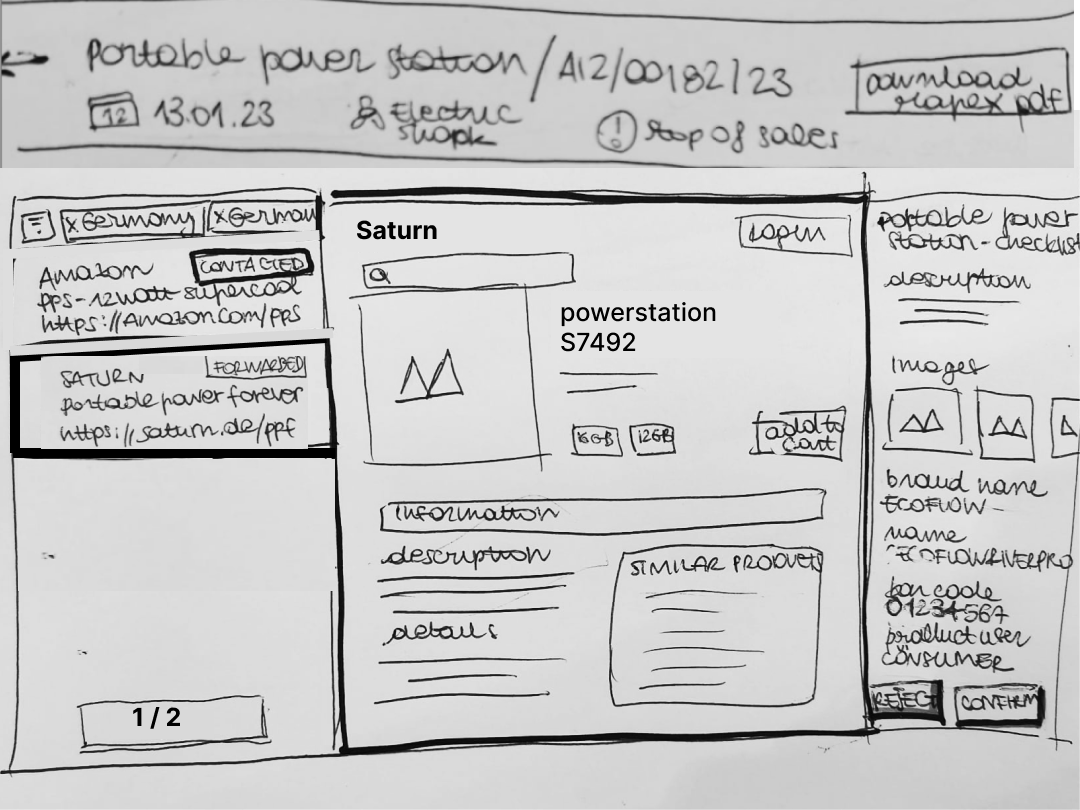 Portable power station / A12/00182/23
Download rapex pdf
12 13.01.23
Electric shock
! stop of sales
x Germany x German
Amazon CONTACTED
pps-12watt supercool
https://Amazon.com/pps
SATURN FORWARDED
Portable power forever
https://saturn.de/ppf
1 / 2
Saturn
Login
powerstation
S7492
6GB 12GB
add to
cart
information
description
details
SIMILAR PRODUCTS
portable power
station - checklist
description
Images
brand name
ECOFLOW
name
ECOFLOWRIVERPRO
bar code
01234567
product user
CONSUMER
REJECT CONFIRM